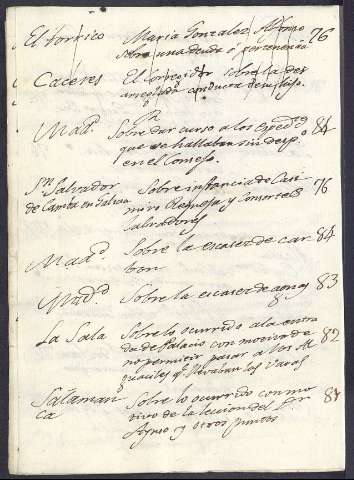 El Torrico Maria Gonzalez Alfonso 76
sobre una deuda o pertenencia
Caceres El Corregidor sobre la des
arreglada conducta de su hijo.
Mad.d Sobre dar curso a los Exped.s 84
que se hallaban sin desp.o
en el Consejo.
S.n Salvador Sobre instancia de Casi 76
de Camba en Galicia miro Reguesa y Consortes
Salvadores
Mad.d Sobre la escasez de car 84
bon
Mad.d Sobre la escasez de 83
La Sala Sobre lo ocurrido a la entra 82
da de Palacio con motivo de
no permitir pasar a los Al
guaciles q.e llevaban las Varas
Salaman Sobre lo ocurrido con mo 87
ca tivo de la leccion del D.r
Ayuso y otros puntos